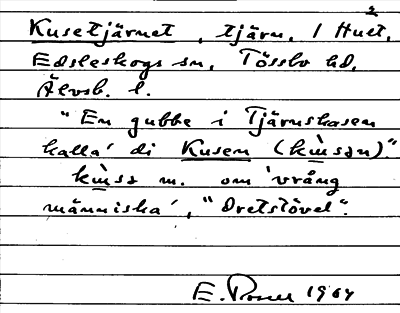 Kusetjärnet, tjärn, 1 Huet,
Edsleskogs sn, Tössbo hd,
Älvsb. l.
"En gubbe i Tjärnshasen
kalla' di Kusen (kùsən)."
kùsə m. om 'vrång
människa', "Oretstövel".
E. 1964